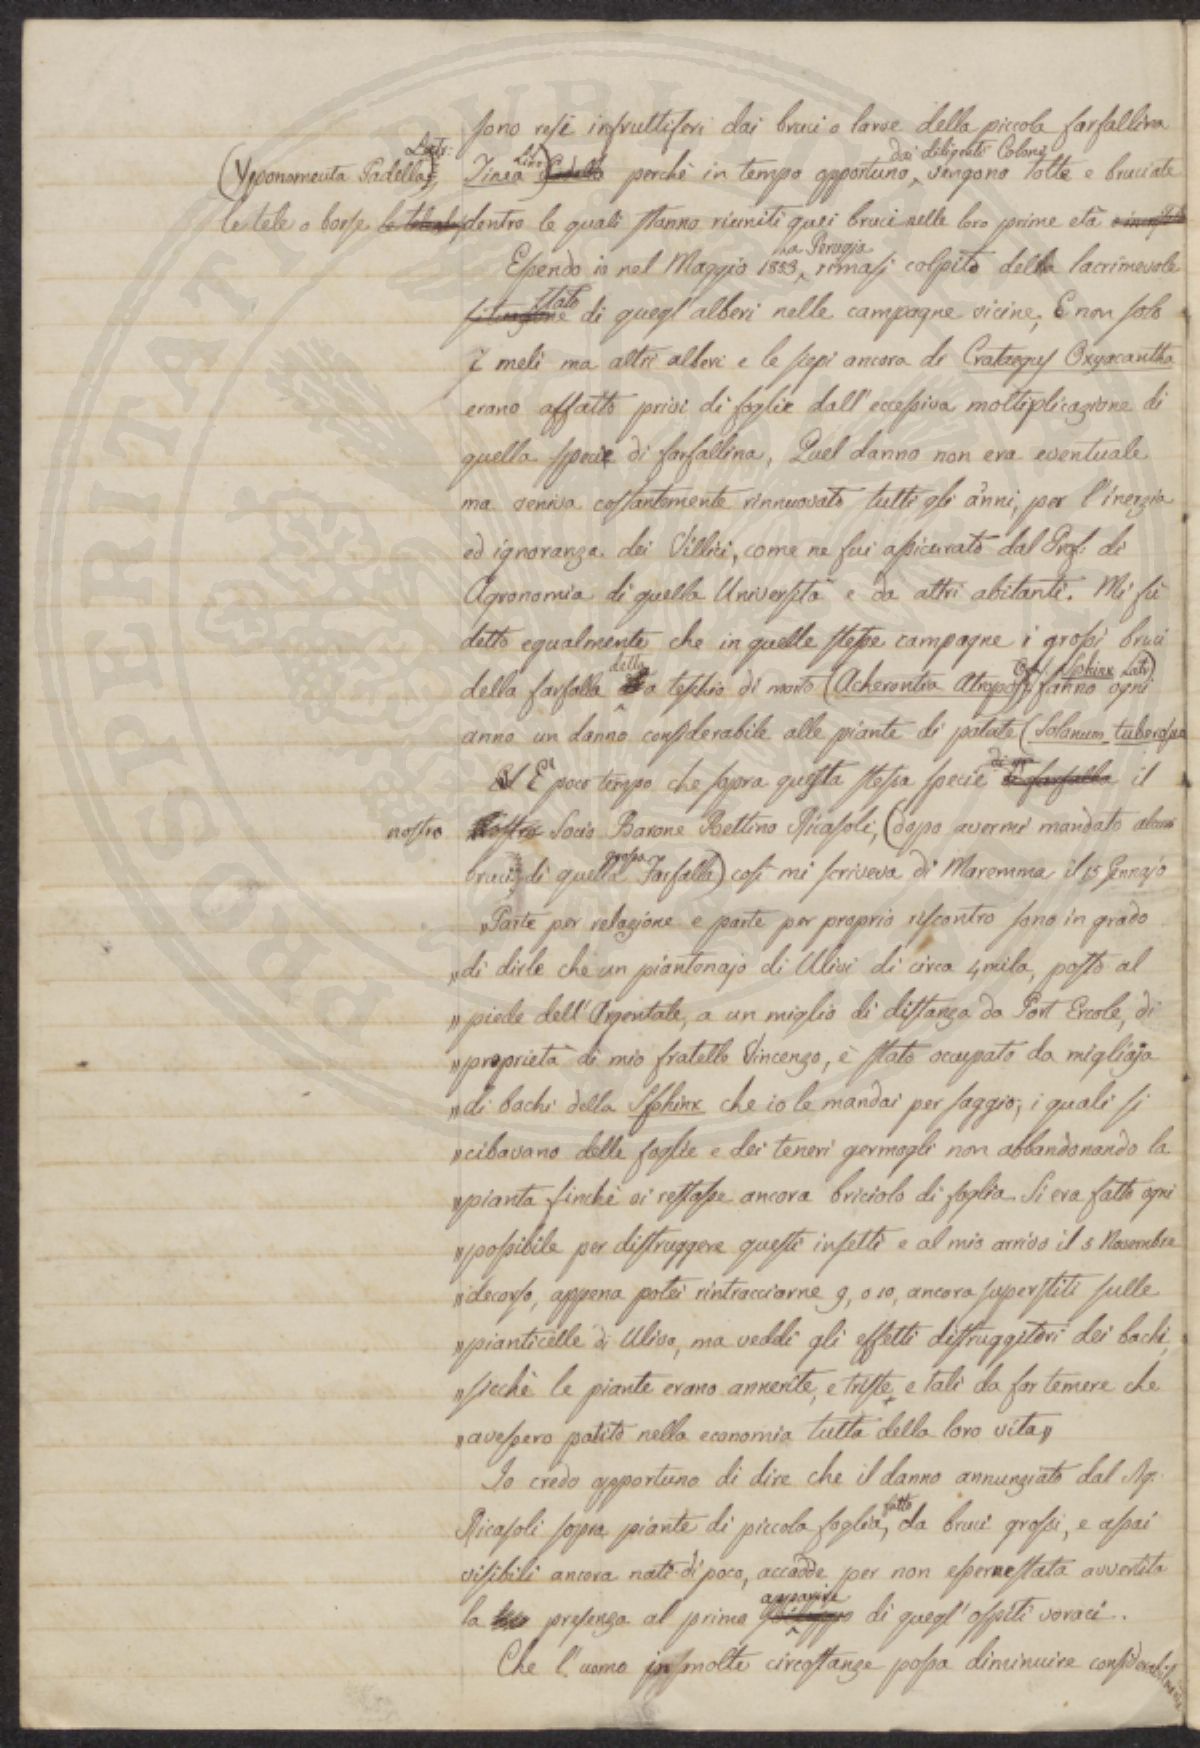 sono resi infruttiferi dai bruci o larve della piccola farfallina
(Yponomeuta Padella Latr: Tinea Lin) Padella perchè in tempo opportuno dai diligenti Coloni vengono tolte e bruciate
le tele o borse dentro le quali stanno riuniti quei bruci nelle loro prime età
Essendo io nel Maggio 1853 a Perugia rimasi colpito della lacrimevole
situazione stato di quegl'alberi nelle campagne vicine, E non solo
I meli ma altri alberi e le siepi ancora di Crataegus Oxyacantha
erano affatto privi di foglie dall'eccessiva moltiplicazione di
quella specie di farfallina, Quel danno non era eventuale
ma veniva costantemente rinnuovato tutti gli anni, per l'inerzia
ed ignoranza dei Villici, come ne fui assicurato dal Prof: di
Agronomia di quella Università e da altri abitanti. Mi fù
detto egualmente che in quelle stesse campagne i grossi bruci
della farfalla detta a teschio di morto (Acherontia Atropos, Sphinx Latr) fanno ogni
anno un danno considerabile alle piante di patate (Solanum tuberosum
E' poco tempo che sopra questa stessa specie di farfalla il
nostro nostro Socio Barone Bettino Ricasoli, (dopo avermi mandato alcuni
bruci di quella grossa Farfalla) così mi scriveva di Maremma il 15 Gennajo
"Parte per relazione e parte per proprio riscontro sono in grado
"di dirle che un piantonajo di Ulivi di circa 4 mila, posto al
"piede dell'Argentale, a un miglio di distanza da Port Ercole, di
"proprietà di mio fratello Vincenzo, è stato occupato da migliaja
"di bachi della Sfphinx che io le mandai per saggio; i quali si
"cibavano delle foglie e dei teneri germogli non abbandonando la
"pianta finchè vi restasse ancora briciolo di foglia. Si era fatto ogni
"possibile per distruggere questi insetti e al mio arrivo il 5 Novembre
"decorso, appena potei rintracciarne 9, o 10, ancora superstiti sulle
"pianticelle di Ulivo, ma veddi gli effetti distruggitori dei bachi,
"sicchè le piante erano annerite, e triste, e tali da far temere che
"avessero patito nella economia tutta della loro vita"
Io credo opportuno di dire che il danno annunziato dal Sig:
Ricasoli sopra piante di piccola foglia, fatto da bruci grossi, e assai
visibili ancora nati di poco, accadde per non essere stata avvertita
la presenza al primo apparire di quegl'ospiti voraci.
Che l'uomo in molte circostanze possa diminuire considerabilmente